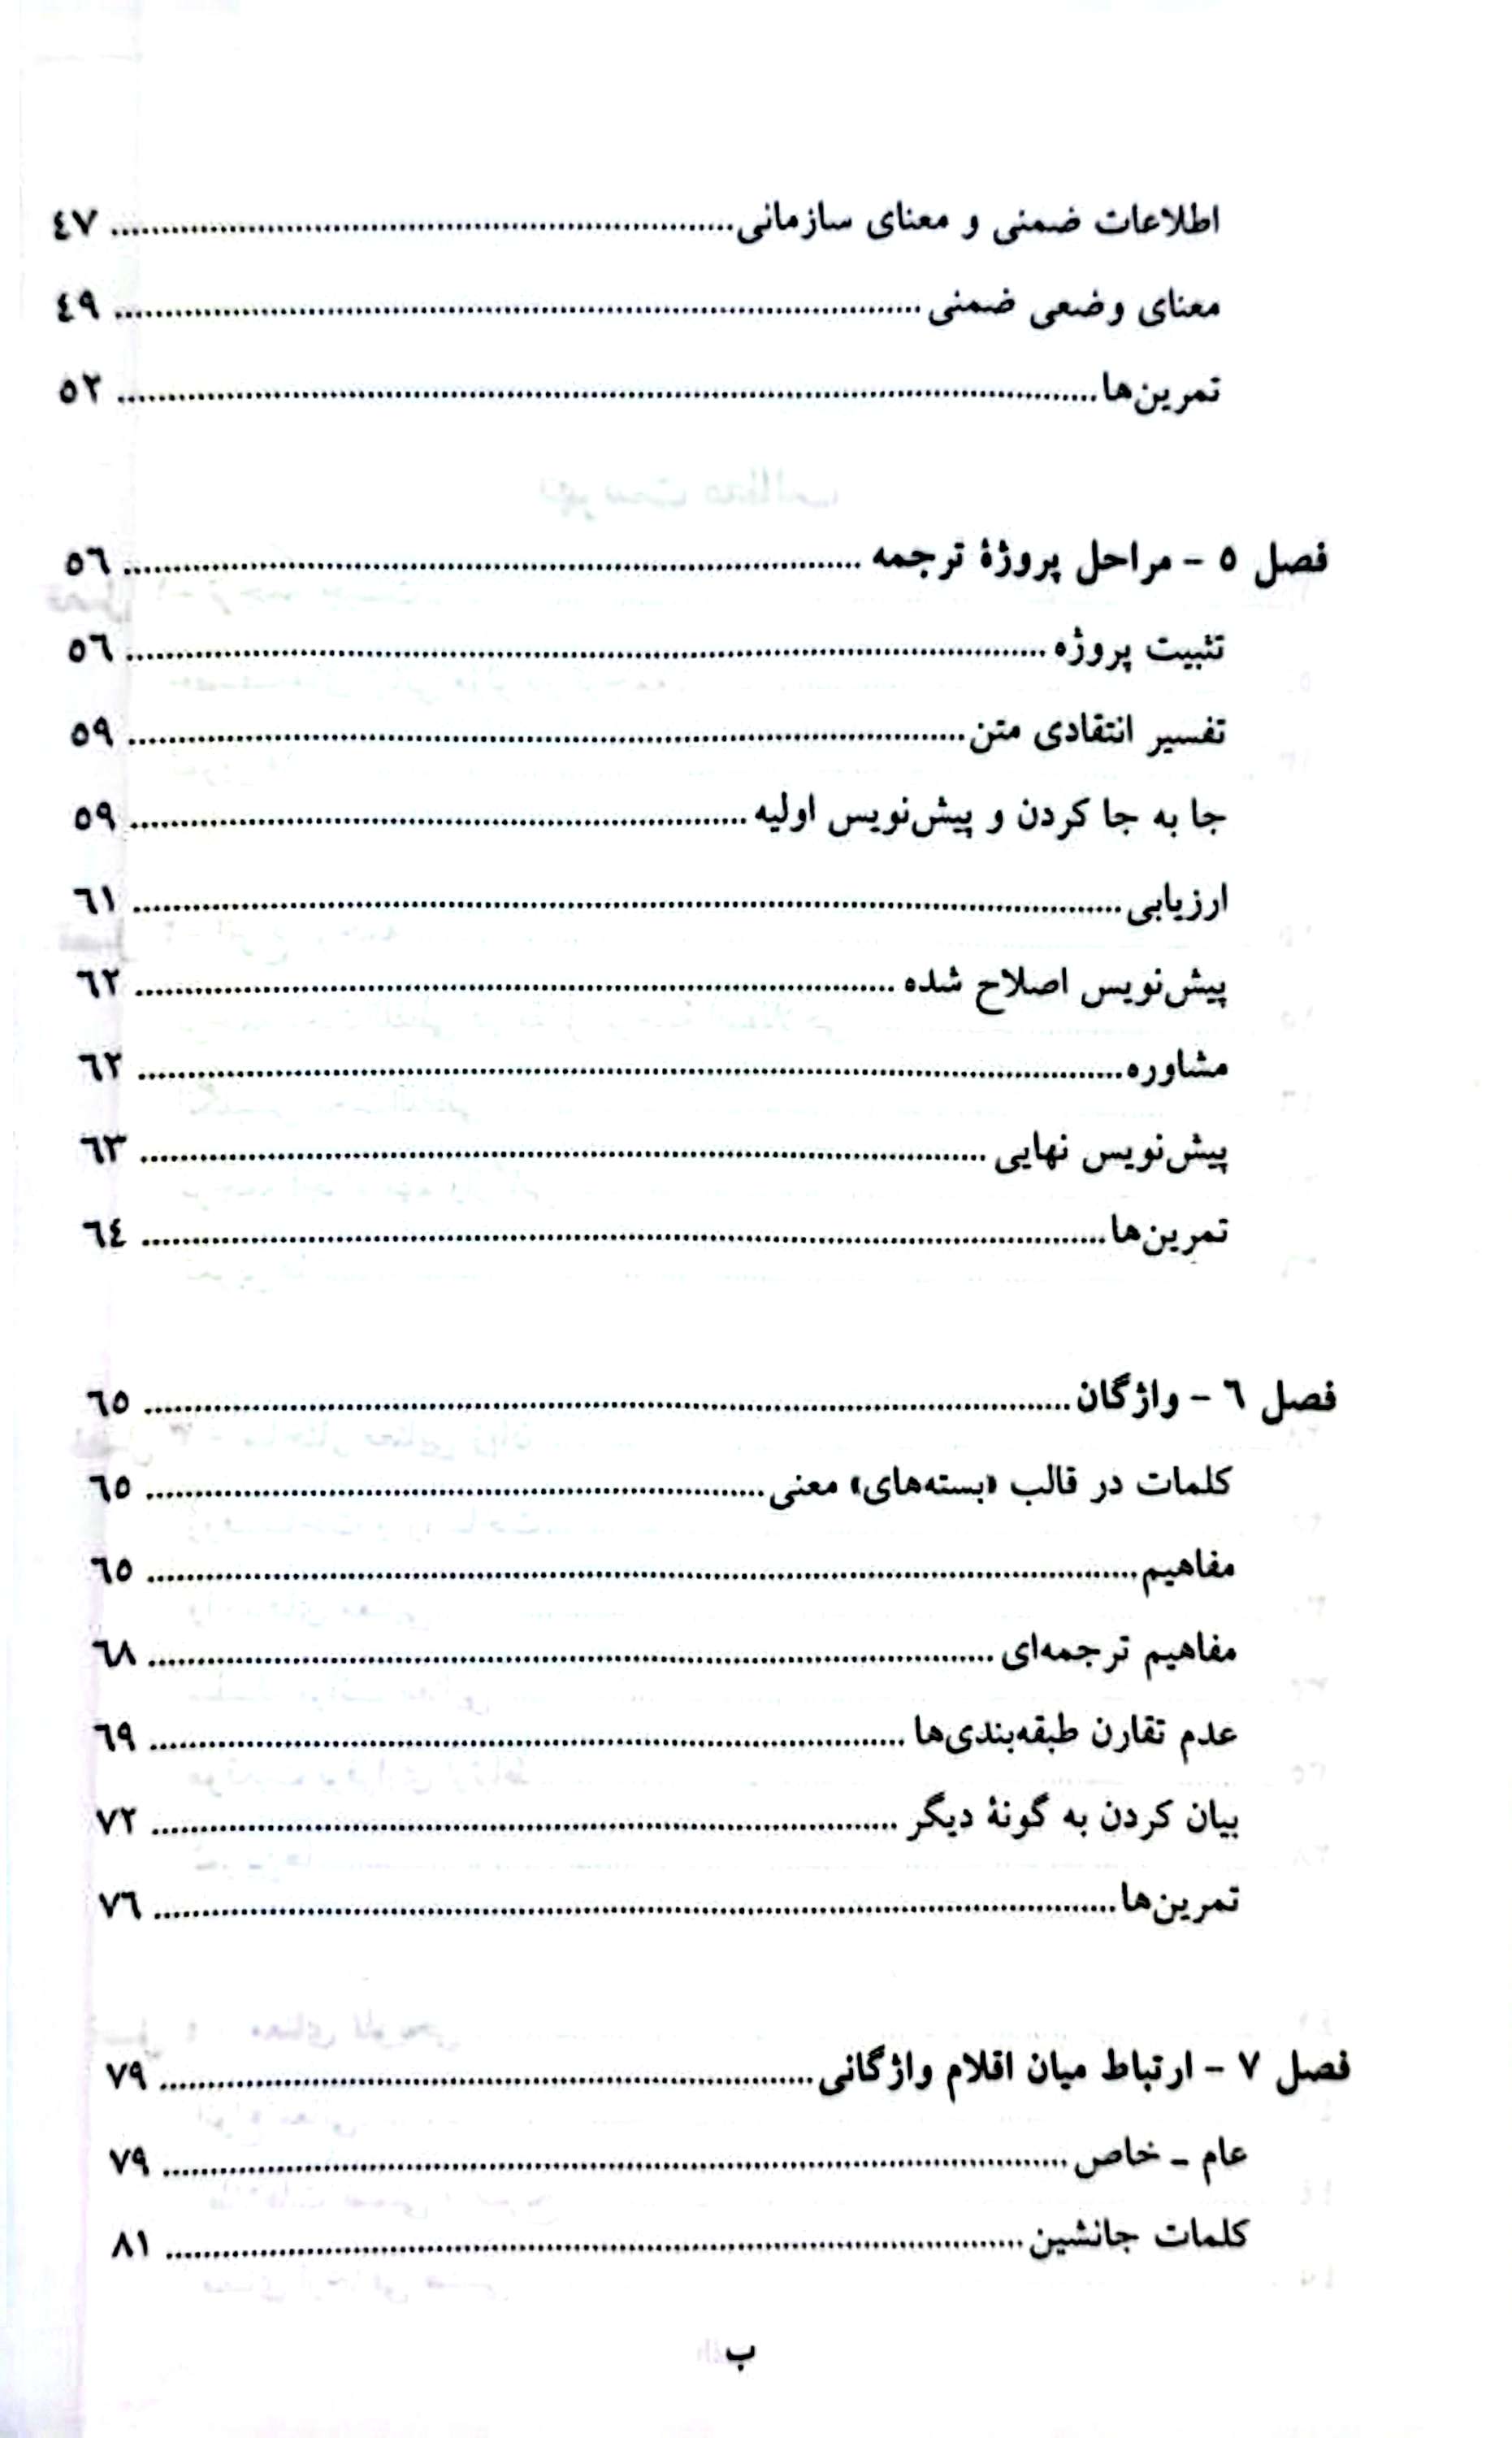 اطلاعات ضمنی و معنای سازمانی ........ ٤٧
معنای وضعی ضمنی ........ ٤٩
تمرین‌ها ........ ٥٢
فصل ٥ - مراحل پروژۀ ترجمه ........ ٥٦
تثبیت پروژه ........ ٥٦
تفسیر انتقادی متن ........ ٥٩
جا به جا کردن و پیش‌نویس اولیه ........ ٥٩
ارزیابی ........ ٦١
پیش‌نویس اصلاح شده ........ ٦٢
مشاوره ........ ٦٢
پیش‌نویس نهایی ........ ٦٣
تمرین‌ها ........ ٦٤
فصل ٦ - واژگان ........ ٦٥
کلمات در قالب «بسته‌های» معنی ........ ٦٥
مفاهیم ........ ٦٥
مفاهیم ترجمه‌ای ........ ٦٨
عدم تقارن طبقه‌بندی‌ها ........ ٦٩
بیان کردن به گونۀ دیگر ........ ٧٢
تمرین‌ها ........ ٧٦
فصل ٧ - ارتباط میان اقلام واژگانی ........ ٧٩
عام - خاص ........ ٧٩
کلمات جانشین ........ ٨١
ب